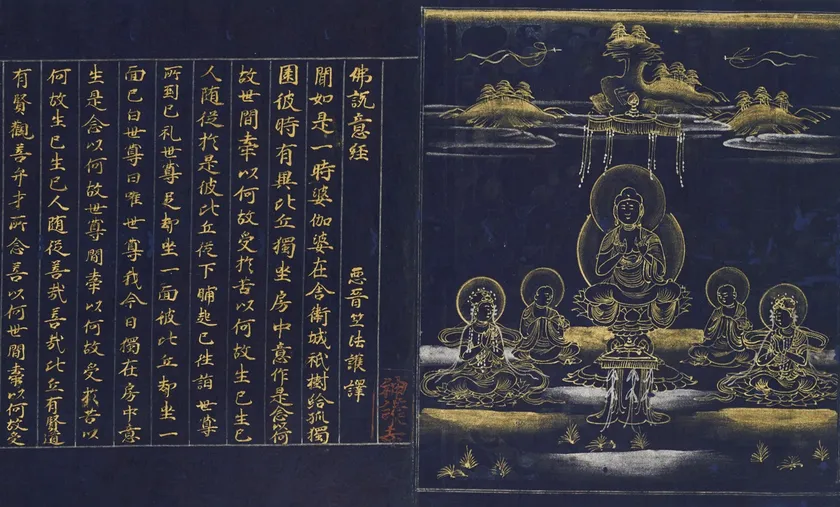 神護寺
佛說意經 晋竺法護譯
聞如是一時婆伽婆在舍衛城祇樹給孤獨
園彼時有異比丘獨坐房中意作是念以何
故世間牽以何故受於苦以何故生已生已
人随從於是彼比丘従下晡起已往詣世尊
所到已礼世尊足却坐一面彼比丘却坐一
面已白世尊曰唯世尊我今日獨在房中意
生是念以何故世尊間牽以何故受於苦以
何故生已生已人随従善哉善哉比丘有賢道
有賢觀善弁才所念善以何世間牽以何故受